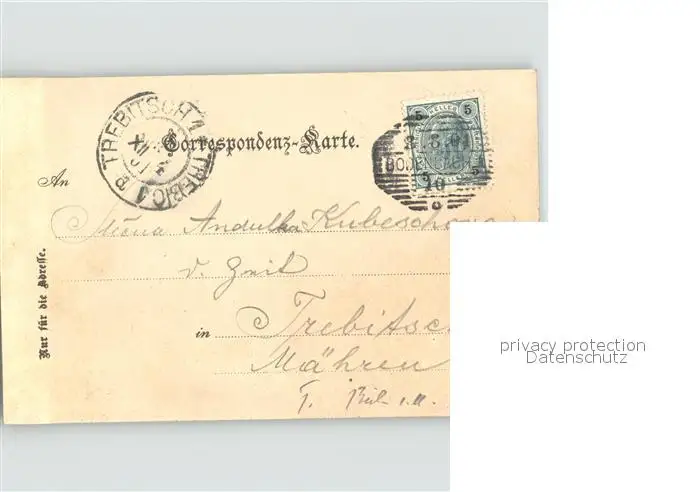 TREBITSCH TŘEBÍČ
Correspondenz-Karte.
5 HELLER 5
5 5
10
An
Andulka Kubeschova
d. Zeit
in Trebitsc
Mähren
Nur für die Adresse.
privacy protection
Datenschutz